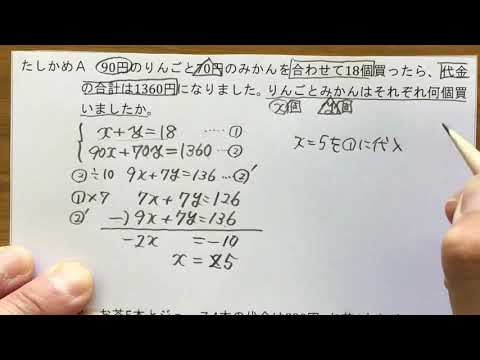 たしかめA 90円のりんごと70円のみかんを合わせて18個買ったら、代金
の合計は1360円になりました。りんごとみかんはそれぞれ何個買
いましたか。
x個 y個
x+y=18 ····①
90x+70y=1360 ···②
x=5を①に代入
②÷10 9x+7y=136 ···②'
①×7 7x+7y=126
②' −)9x+7y=136
−2x =−10
x=5